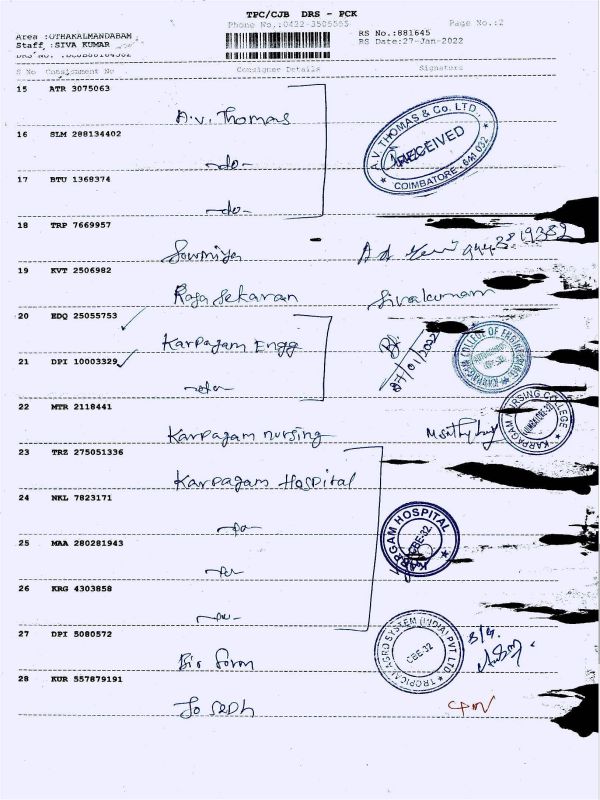 TPC/CJB DRS - PCK
Phone No.:0422-3505555 Page No.:2
Area :OTHAKALMANDABAM
Staff :SIVA KUMAR
RS No.:881645
RS Date:27-Jan-2022
S No Consignment No Consignee Details Signature
15 ATR 3075063
A.V. Thomas
16 SLM 288134402
-do-
17 BTU 1368374
-do-
A.V. THOMAS & Co. LTD.,
RECEIVED
COIMBATORE - 641 032
18 TRP 7669957
Sowmiya
19 KVT 2506982
Raja Sekaran Sivakumar
20 EDQ 25055753
Karpagam Engg
27/01/2022
KARPAGAM COLLEGE OF ENGINEERING
21 DPI 10003329
-do-
22 MTR 2118441
Karpagam nursing
KARPAGAM NURSING COLLEGE
23 TRZ 275051336
Karpagam Hospital
24 NKL 7823171
-do-
25 MAA 280281943
-do-
KARPAGAM HOSPITAL
CBE-32
26 KRG 4303858
-do-
27 DPI 5080572
TROPICAL AGRO SYSTEM (INDIA) PVT. LTD.
CBE-32
28 KUR 557879191